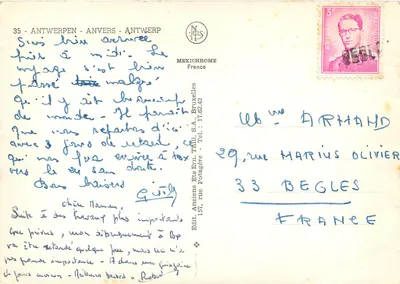 35 - ANTWERPEN - ANVERS - ANTWERP
Suis bien arrivée
hier à midi. Le
voyage s'est bien
passé malgré
qu'il y ait beaucoup
de monde - Il paraît
que nous repartons d'ici
avec 3 jours de retard, ce
qui nous fera arriver à
vers le sans doute.
Bons baisers
chère Maman,
Suite à ses travaux plus importants
que prévus, mon débarquement à
va être retardé quelque peu, mais ce n'est
pas grande importance - A dans une quinzaine
de jours environ - Robert
MEXICHROME
France
Edit. Anciens Ets Ern. Thill, S.A. Bruxelles
157, rue Potagère - Tél.: 17.62.42
Mme ARMAND
29, rue MARIUS OLIVIER
33 BEGLES
FRANCE